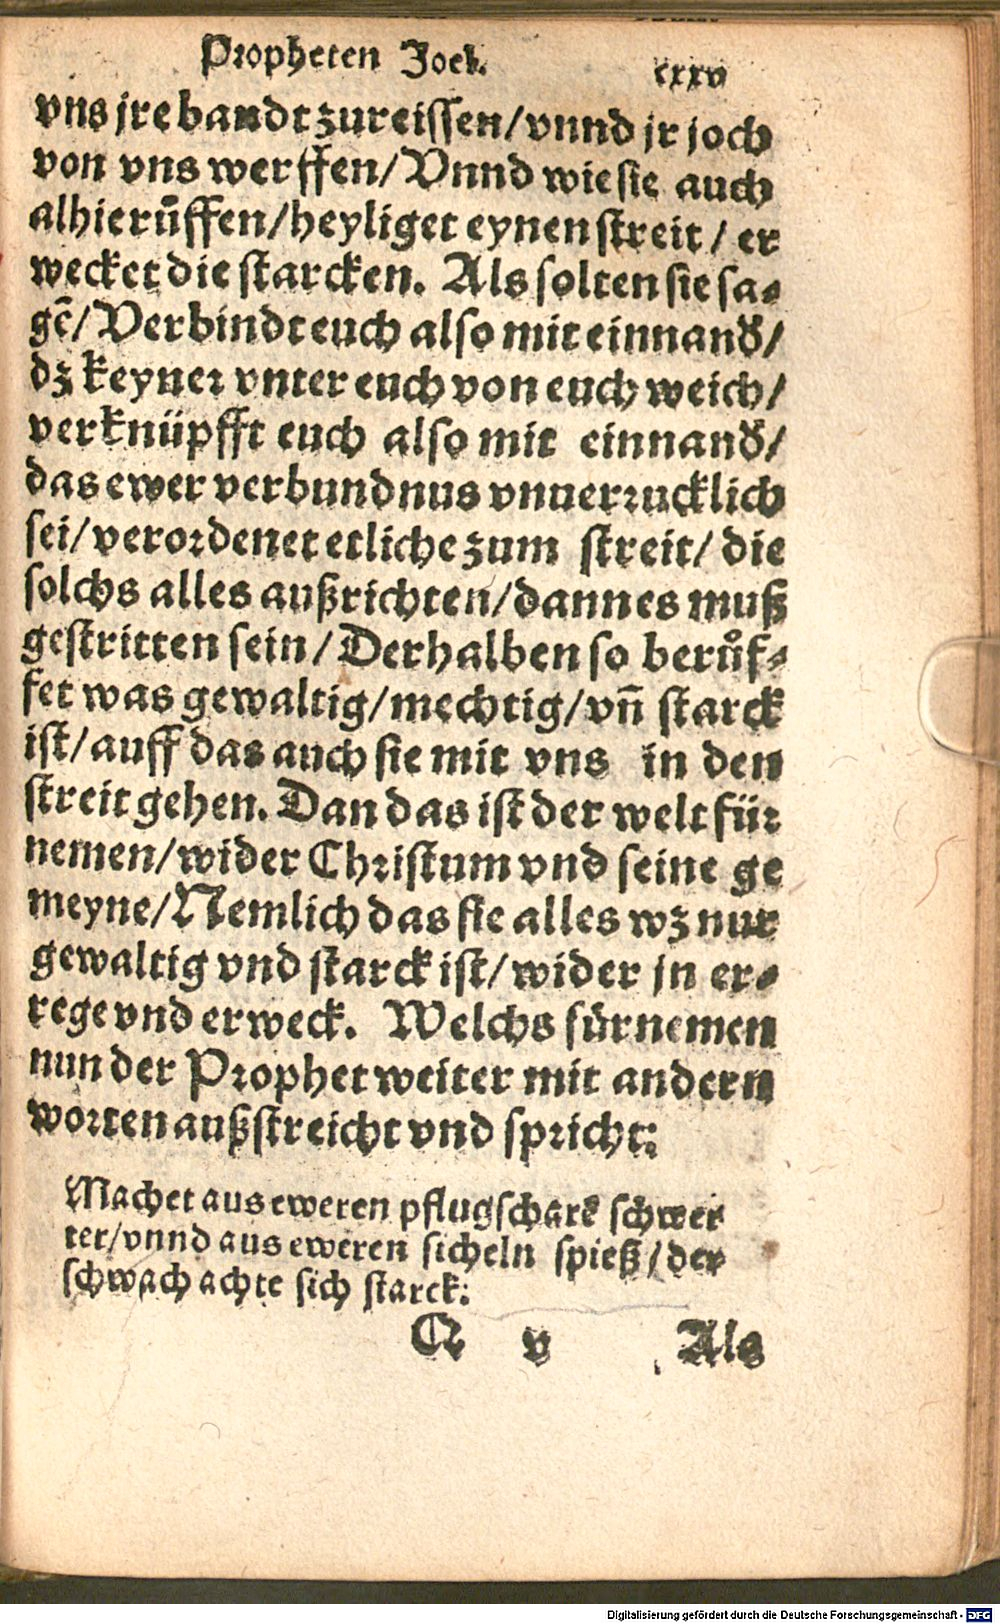 Propheten Joel. cxxv
vns jre bandt zureissen/vnnd jr joch
von vns werffen/Vnnd wie sie auch
alhie rüffen/heyliget eynen streit/ er
wecket die starcken. Als solten sie sa⸗
gē/Verbindt euch also mit einnand̕/
dz keyner vnter euch von euch weich/
verknüpfft euch also mit einnand̕/
das ewer verbundnus vnuerrucklich
sei/verordenet etliche zum streit/ die
solchs alles außrichten/dann es muß
gestritten sein/Derhalben so berůf⸗
fet was gewaltig/mechtig/vn̄ starck
ist/auff das auch sie mit vns in den
streit gehen. Dan das ist der welt für
nemen/wider Christum vnd seine ge
meyne/Nemlich das sie alles wz nur
gewaltig vnd starck ist/wider jn er⸗
rege vnd erweck. Welchs fürnemen
nun der Prophet weiter mit andern
worten außstreicht vnd spricht:
Machet aus eweren pflugschare schwer
ter/vnnd aus eweren sicheln spieß/der
schwach achte sich starck:
Q v Als
Digitalisierung gefördert durch die Deutsche Forschungsgemeinschaft - DFG